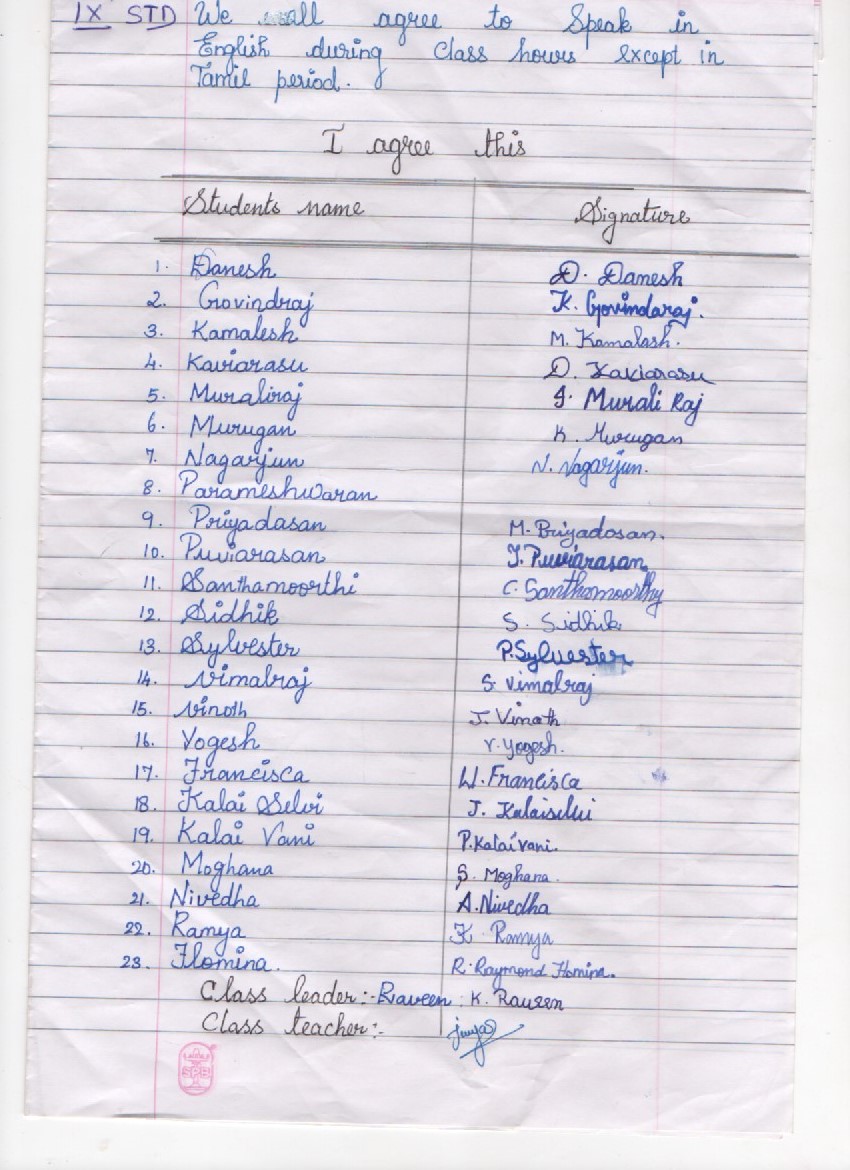 IX STD We all agree to Speak in
English during Class hours except in
Tamil period.
I agree this
Students name Signature
1. Danesh D. Danesh
2. Govindraj K. Govindaraj.
3. Kamalesh M. Kamalash.
4. Kaviarasu D. Kaviarasu
5. Muraliraj J. Murali Raj
6. Murugan K. Murugan
7. Nagarjun N. Nagarjun.
8. Parameshwaran
9. Priyadasan M. Briyadosan.
10. Puviarasan J. Puviarasan
11. Santhamoorthi C. Santhamoorthy
12. Sidhik S. Sidhik
13. Sylvester P. Sylvester
14. Vimalraj S. Vimalraj
15. Vinoth J. Vinoth
16. Yogesh V. Yogesh.
17. Francisca W. Francisca
18. Kalai Selvi J. Kalaiselvi
19. Kalai Vani P. Kalaivani.
20. Moghana S. Moghana.
21. Nivedha A. Nivedha
22. Ramya K. Ramya
23. Flomina. R. Raymond Flomina.
Class leader:- Raveen : K. Raveen
Class teacher:-
SPB